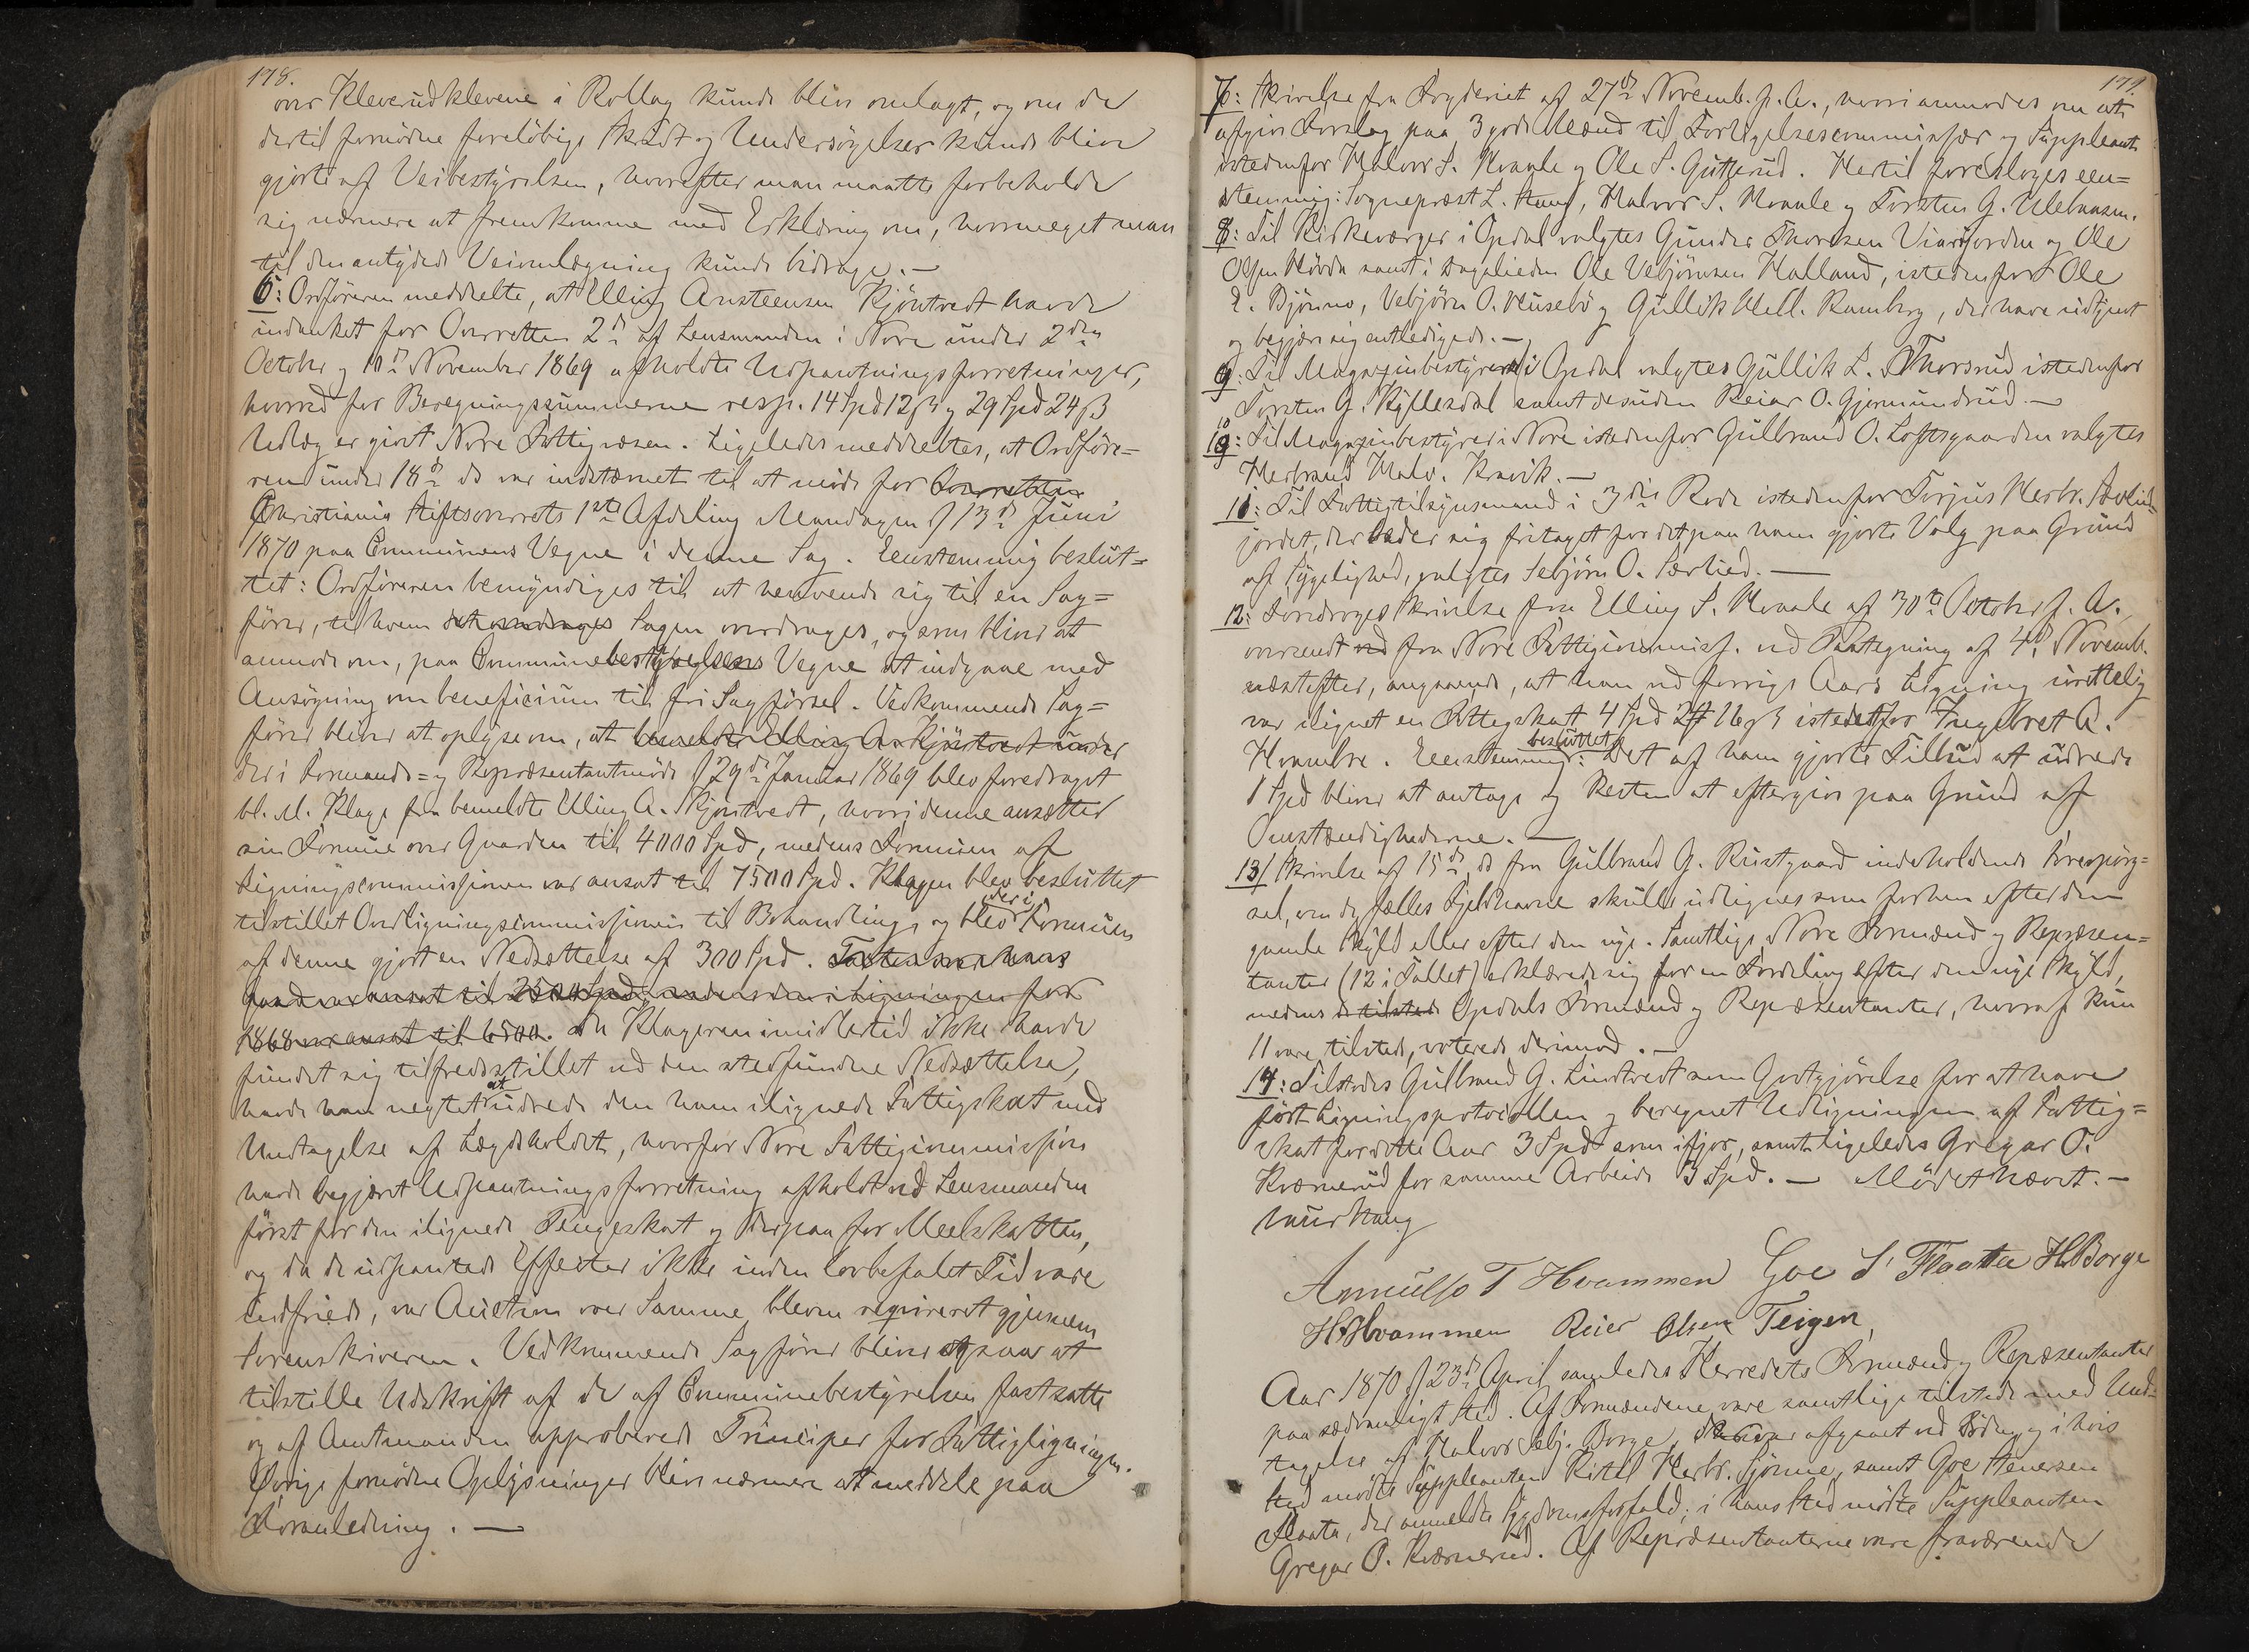 178.
over Kleverudklevene i Rollag kunde blive omlagt, og om de
dertil fornødne foreløbige Skridt og Undersøgelser kunde blive
gjorte af Veibestyrelsen, hvorefter man maatte forbeholde
sig nærmere at fremkomme med Erklæring om, hvormeget man
til den antydede Veiomlægning kunde bidrage. —
6: Ordføreren meddelte, at Elling Ansteensen Kjøntvedt havde
indanket for Overretten 2de af Lensmanden i Nore under 2den
October og 10de November 1869 afholdte Udpantningsforretninger,
hvorved for Beregningssummerne resp. 14 Spd 12 ß og 29 Spd 24 ß
Udlæg er givet Nore Fattigvæsen. Ligeledes meddeltes, at Ordføre=
ren under 18de ds var indstævnet til at møde for Overretten
Christiania Stiftsoverrets 1ste Afdeling Mandagen d 13de Juni
1870 paa Communens Vegne i denne Sag. Eenstemmig beslut=
tet: Ordføreren bemyndiges til at henvende sig til en Sag=
fører, til hvem det overdrages Sagen overdrages, og som bliver at
anmode om, paa Communebestyrelsens Vegne at indgaae med
Ansøgning om beneficium til fri Sagførsel. Vedkommende Sag=
fører bliver at oplyse om, at bemeldte Elling A. Kjøntvedt under
der i Formands= og Repræsentantmøde d 29de Januar 1869 blev foredraget
bl. A. Klage fra bemeldte Elling A. Kjøntvedt, hvori denne ansætter
sin Formue over Gaarden til 4000 Spd, medens Formuen af
Ligningscommissionen var ansat til 7500 Spd. Klagen blev besluttet
tilstillet Overligningscommissionen til Behandling, og blev deri Formuen
af denne gjort en Nedsættelse af 300 Spd. Taxten over hans
Gaard var ansat til 2500 Spd, medens den i Ligningen for
1868 var ansat til 6500. Da Klageren imidlertid ikke havde
fundet sig tilfredsstillet ved den stedfundne Nedsættelse,
havde han negtet at udrede den ham ilignede Fattigskat med
Undtagelse af Lægdsholdet, hvorfor Nore Fattigcommission
havde begjæret Udpantningsforretning afholdt ved Lensmanden
først for den ilignede Pengeskat og derpaa for Meelskatten,
og da de udpantede Effecter ikke inden lovbefalet Tid vare
indfriede, var Auction over Samme bleven reqvireret gjennem
Sorenskriveren. Vedkommende Sagfører bliver ogsaa at
tilstille Udskrift af de af Communebestyrelsen fastsatte
og af Amtmanden approberede Principer for Fattigligningen.
Øvrige fornødne Oplysninger blive nærmere at meddele paa
Foranledning. —
179.
7: Skrivelse fra Fogderiet af 27de Novemb. f. A., hvori anmodes om at
afgive Forslag paa 3 gode Mænd til Forligelsescommissær og Suppleant
istedenfor Halvor S. Hvaale og Ole S. Gutterud. Hertil foresloges een=
stemmig: Sognepræst L. Haug, Halvor S. Hvaale og Torsten G. Ulebaasn.
8: Til Kirkeværger i Opdal valgtes Gunder Thoresen Viarfjorden og Ole
Olsen Hövda samt i Dagalieden Ole Vebjørnsen Halland, istedenfor Ole
E. Bjønno, Vebjørn O. Husebö og Gullik Hell. Ramberg, der have udtjent
og begjære sig entledigede. —
9: Til Magazinbestyrer i Opdal valgtes Gullik L. Thorsrud istedenfor
Torsten G. Kyllesdal samt desuden Reiar O. Gjermundrud. —
10: Til Magazinbestyrer i Nore istedenfor Gulbrand O. Loftsgaarden valgtes
Herbrand Halv. Kravik. —
11: Til Fattigtilsynsmand i 3die Rode istedenfor Torjus Herbr.
jordet, der beder sig fritaget for det paa ham gjorte Valg paa Grund
af Sygelighed, valgtes Sebjørn O. Serlied. —
12: Foredroges Skrivelse fra Elling S. Hvaale af 30te October f. A.
oversendt ved fra Nore Fattigcommiss. ved Paategning af 4de Novemb.
næstefter, angaaende, at han ved forrige Aars Ligning urettelig
var ilignet en Fattigskat 4 Spd 2 Ort 16 ß istedetfor Ingebret A.
Hvambre. Eenstemmig besluttet: Det af ham gjorte Tilbud at udrede
1 Spd bliver at antage og Resten at eftergive paa Grund af
Omstændighederne. —
13/ Skrivelse af 15de ds fra Gulbrand G. Rustgaard indeholdende Forespørg=
sel, om de fælles Fjeldhavne skulle udlignes som forhen efter den
gamle Skyld eller efter den nye. Samtlige Nore Formænd og Repræsen=
tanter (12 i Tallet) erklærede sig for en Fordeling efter den nye Skyld,
medens de tilstede Opdals Formænd og Repræsentanter, hvoraf kun
11 vare tilstede, voterede derimod. —
14: Tilstodes Gulbrand G. Lindtvedt som Godtgjörelse for at have
ført Ligningsprotocollen og beregnet Udligningen af Fattig=
skat for dette Aar 3 Spd som ifjor, samt ligeledes Gregar O.
Kværnerud for samme Arbeide 3 Spd. — Mødet hævet. —
Haug
T Hvammen Goe S Flaata HBorge
HHvammen Reier Olsen Teigen,
Aar 1870 d 23de April samledes Herredets Formænd og Repræsentanter
paa sædvanligt Sted. Af Formændene vare samtlige tilstede med Und=
tagelse af Halvor Sebj. Borge, der var afgaaet ved Döden, og i hvis
Sted mødte Suppleanten Kittil Herbr. Sjønne, samt Goe Stenersen
Flaata, der anmeldte Sygdomsforfald; i hans Sted mødte Suppleanten
Gregar O. Kværnerud. Af Repræsentanterne vare fraværende